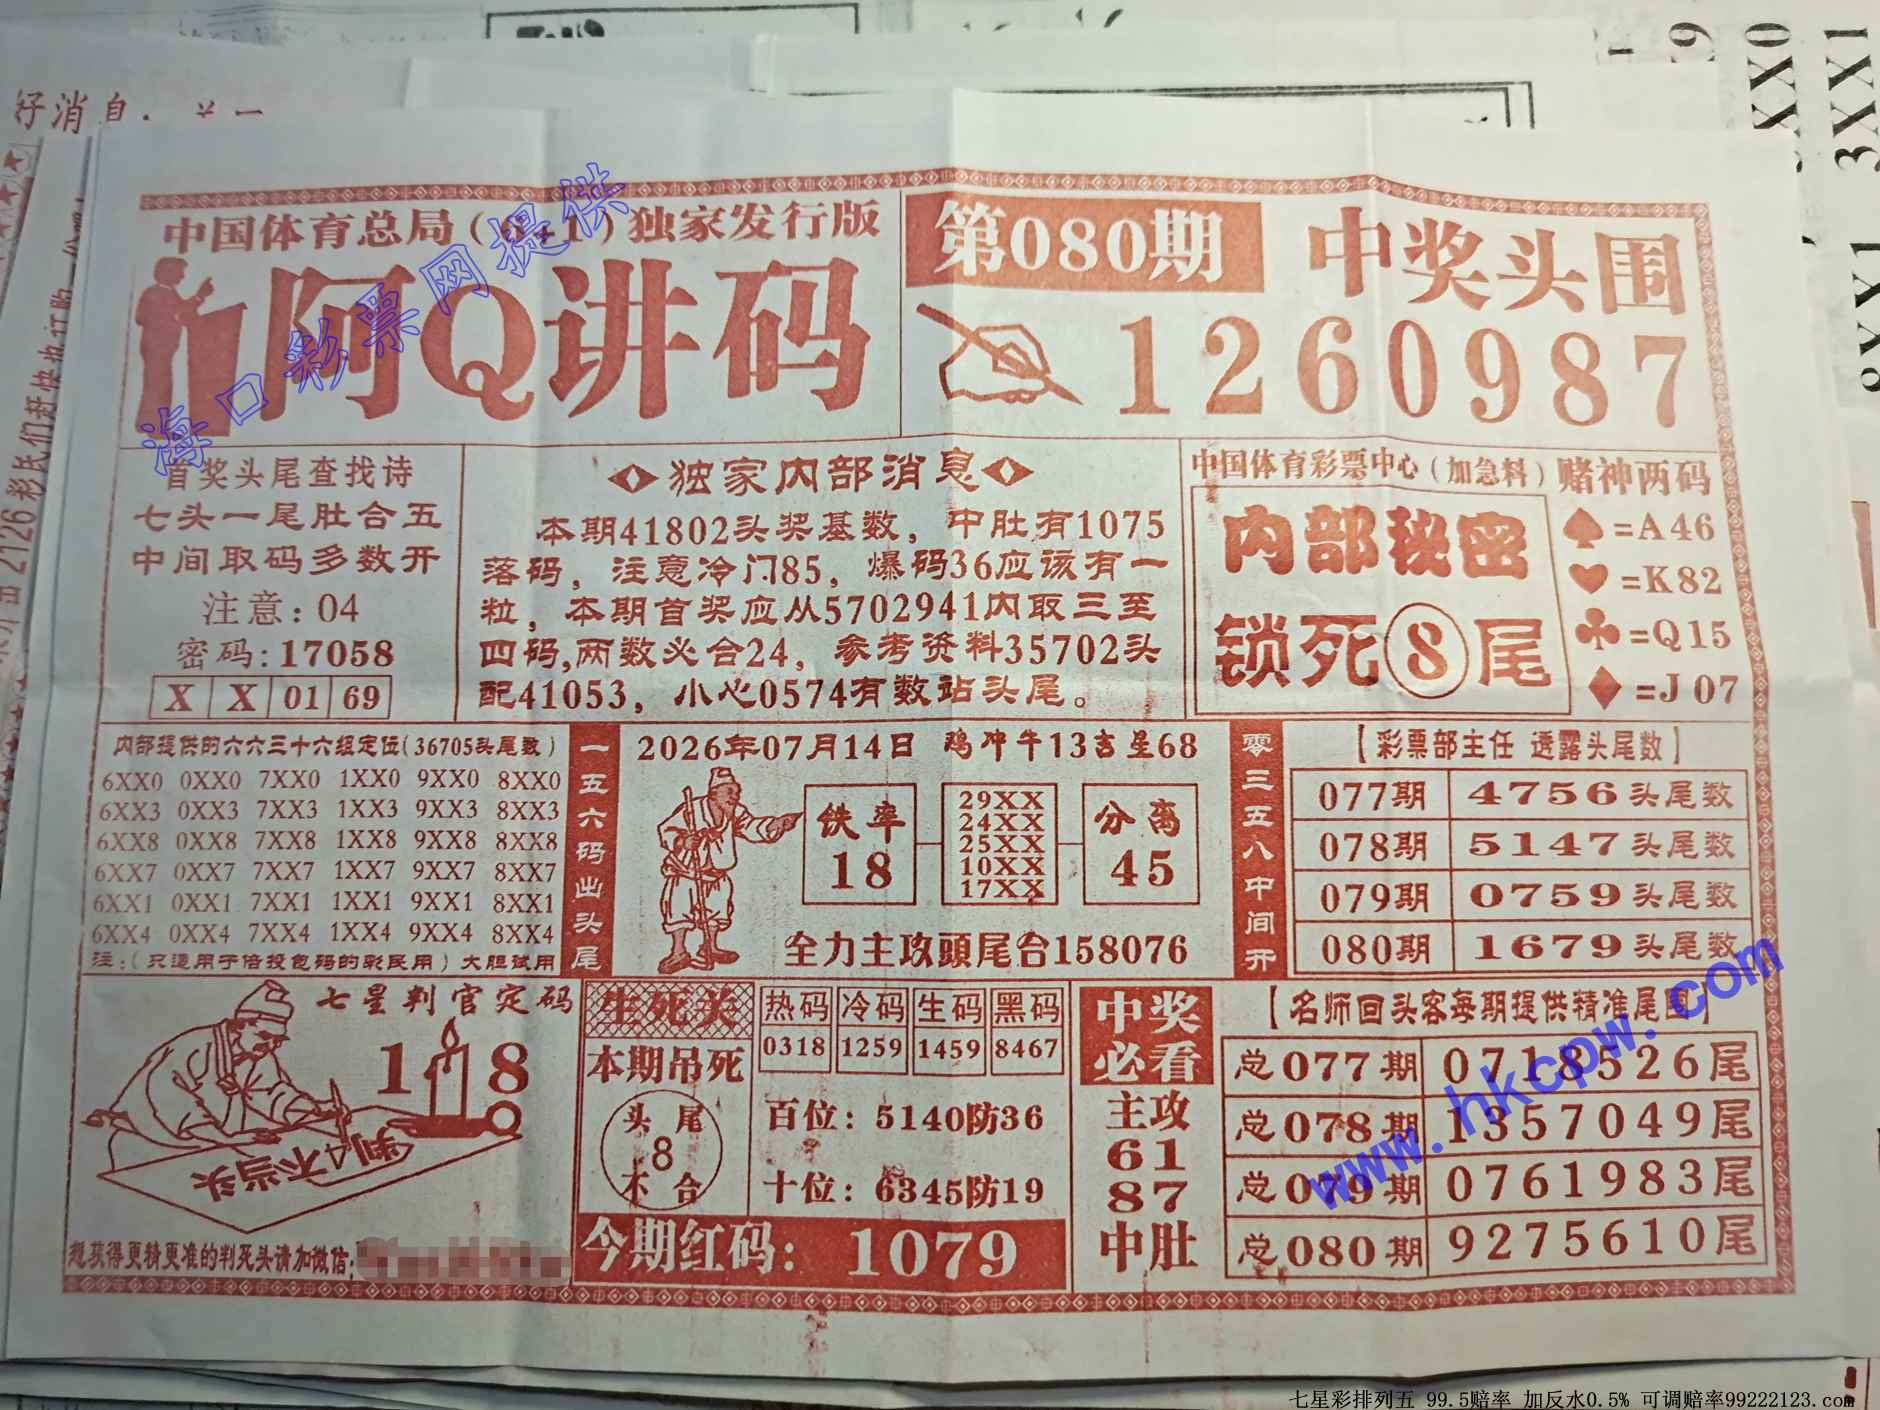 好消息:
中国体育总局(6+1)独家发行版
阿Q讲码
第080期
中奖头围
1260987
海口彩票网提供
首奖头尾查找诗
七头一尾肚合五
中间取码多数开
注意:04
密码:17058
X X 01 69
独家内部消息
本期41802头奖基数，中肚有1075
落码，注意冷门85，爆码36应该有一
粒，本期首奖应从5702941内取三至
四码,两数必合24，参考资料35702头
配41053，小心0574有数站头尾。
中国体育彩票中心(加急料)赌神两码
内部秘密
锁死8尾
♠=A46
♥=K82
♣=Q15
♦=J07
内部提供的六六三十六组定位(36705头尾数)
6XX0 0XX0 7XX0 1XX0 9XX0 8XX0
6XX3 0XX3 7XX3 1XX3 9XX3 8XX3
6XX8 0XX8 7XX8 1XX8 9XX8 8XX8
6XX7 0XX7 7XX7 1XX7 9XX7 8XX7
6XX1 0XX1 7XX1 1XX1 9XX1 8XX1
6XX4 0XX4 7XX4 1XX4 9XX4 8XX4
注:(只适用于倍投包码的彩民用)大胆试用
一五六码出头尾
2026年07月14日 鸡冲牛13吉星68
铁率
18
29XX
24XX
25XX
10XX
17XX
分离
45
全力主攻頭尾合158076
零三五八中间开
【彩票部主任 透露头尾数】
077期 4756头尾数
078期 5147头尾数
079期 0759头尾数
080期 1679头尾数
七星判官定码
1 8
判4不当头
想获得更精更准的判死头请加微信:
生死关
本期吊死
头尾
8
不合
热码 冷码 生码 黑码
0318 1259 1459 8467
百位：5140防36
十位：6345防19
今期红码：1079
中奖
必看
主攻
61
87
中肚
【名师回头客每期提供精准尾围】
总077期 0718526尾
总078期 1357049尾
总079期 0761983尾
总080期 9275610尾
www.hkcpw.com
七星彩排列五 99.5赔率 加反水0.5% 可调赔率99222123.com